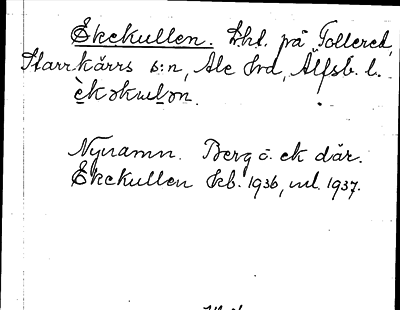 Ekekullen. Lht. på Tollered,
Starrkärrs s:n, Ale hrd, Älfsb. l.
Nynamn. Berg o. ek där.
Ekekullen kb. 1936, ml. 1937.